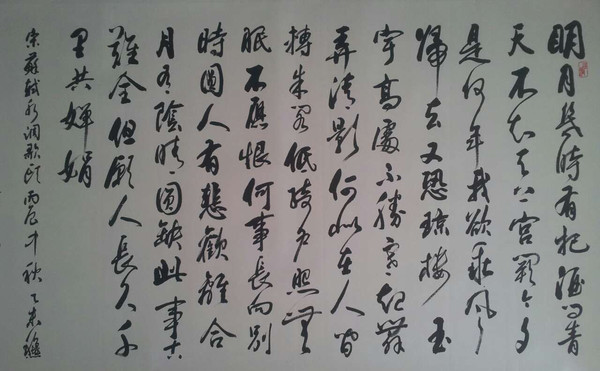 明月幾時有把酒問青
天不知天上宮闕今夕
是何年我欲乘風
歸去又恐瓊樓玉
宇高處不勝寒起舞
弄清影何似在人間
轉朱閣低綺戶照無
眠不應恨何事長向別
時圓人有悲歡離合
月有陰晴圓缺此事古
難全但願人長久千
里共嬋娟
宋蘇軾水調歌頭丙辰中秋乙未